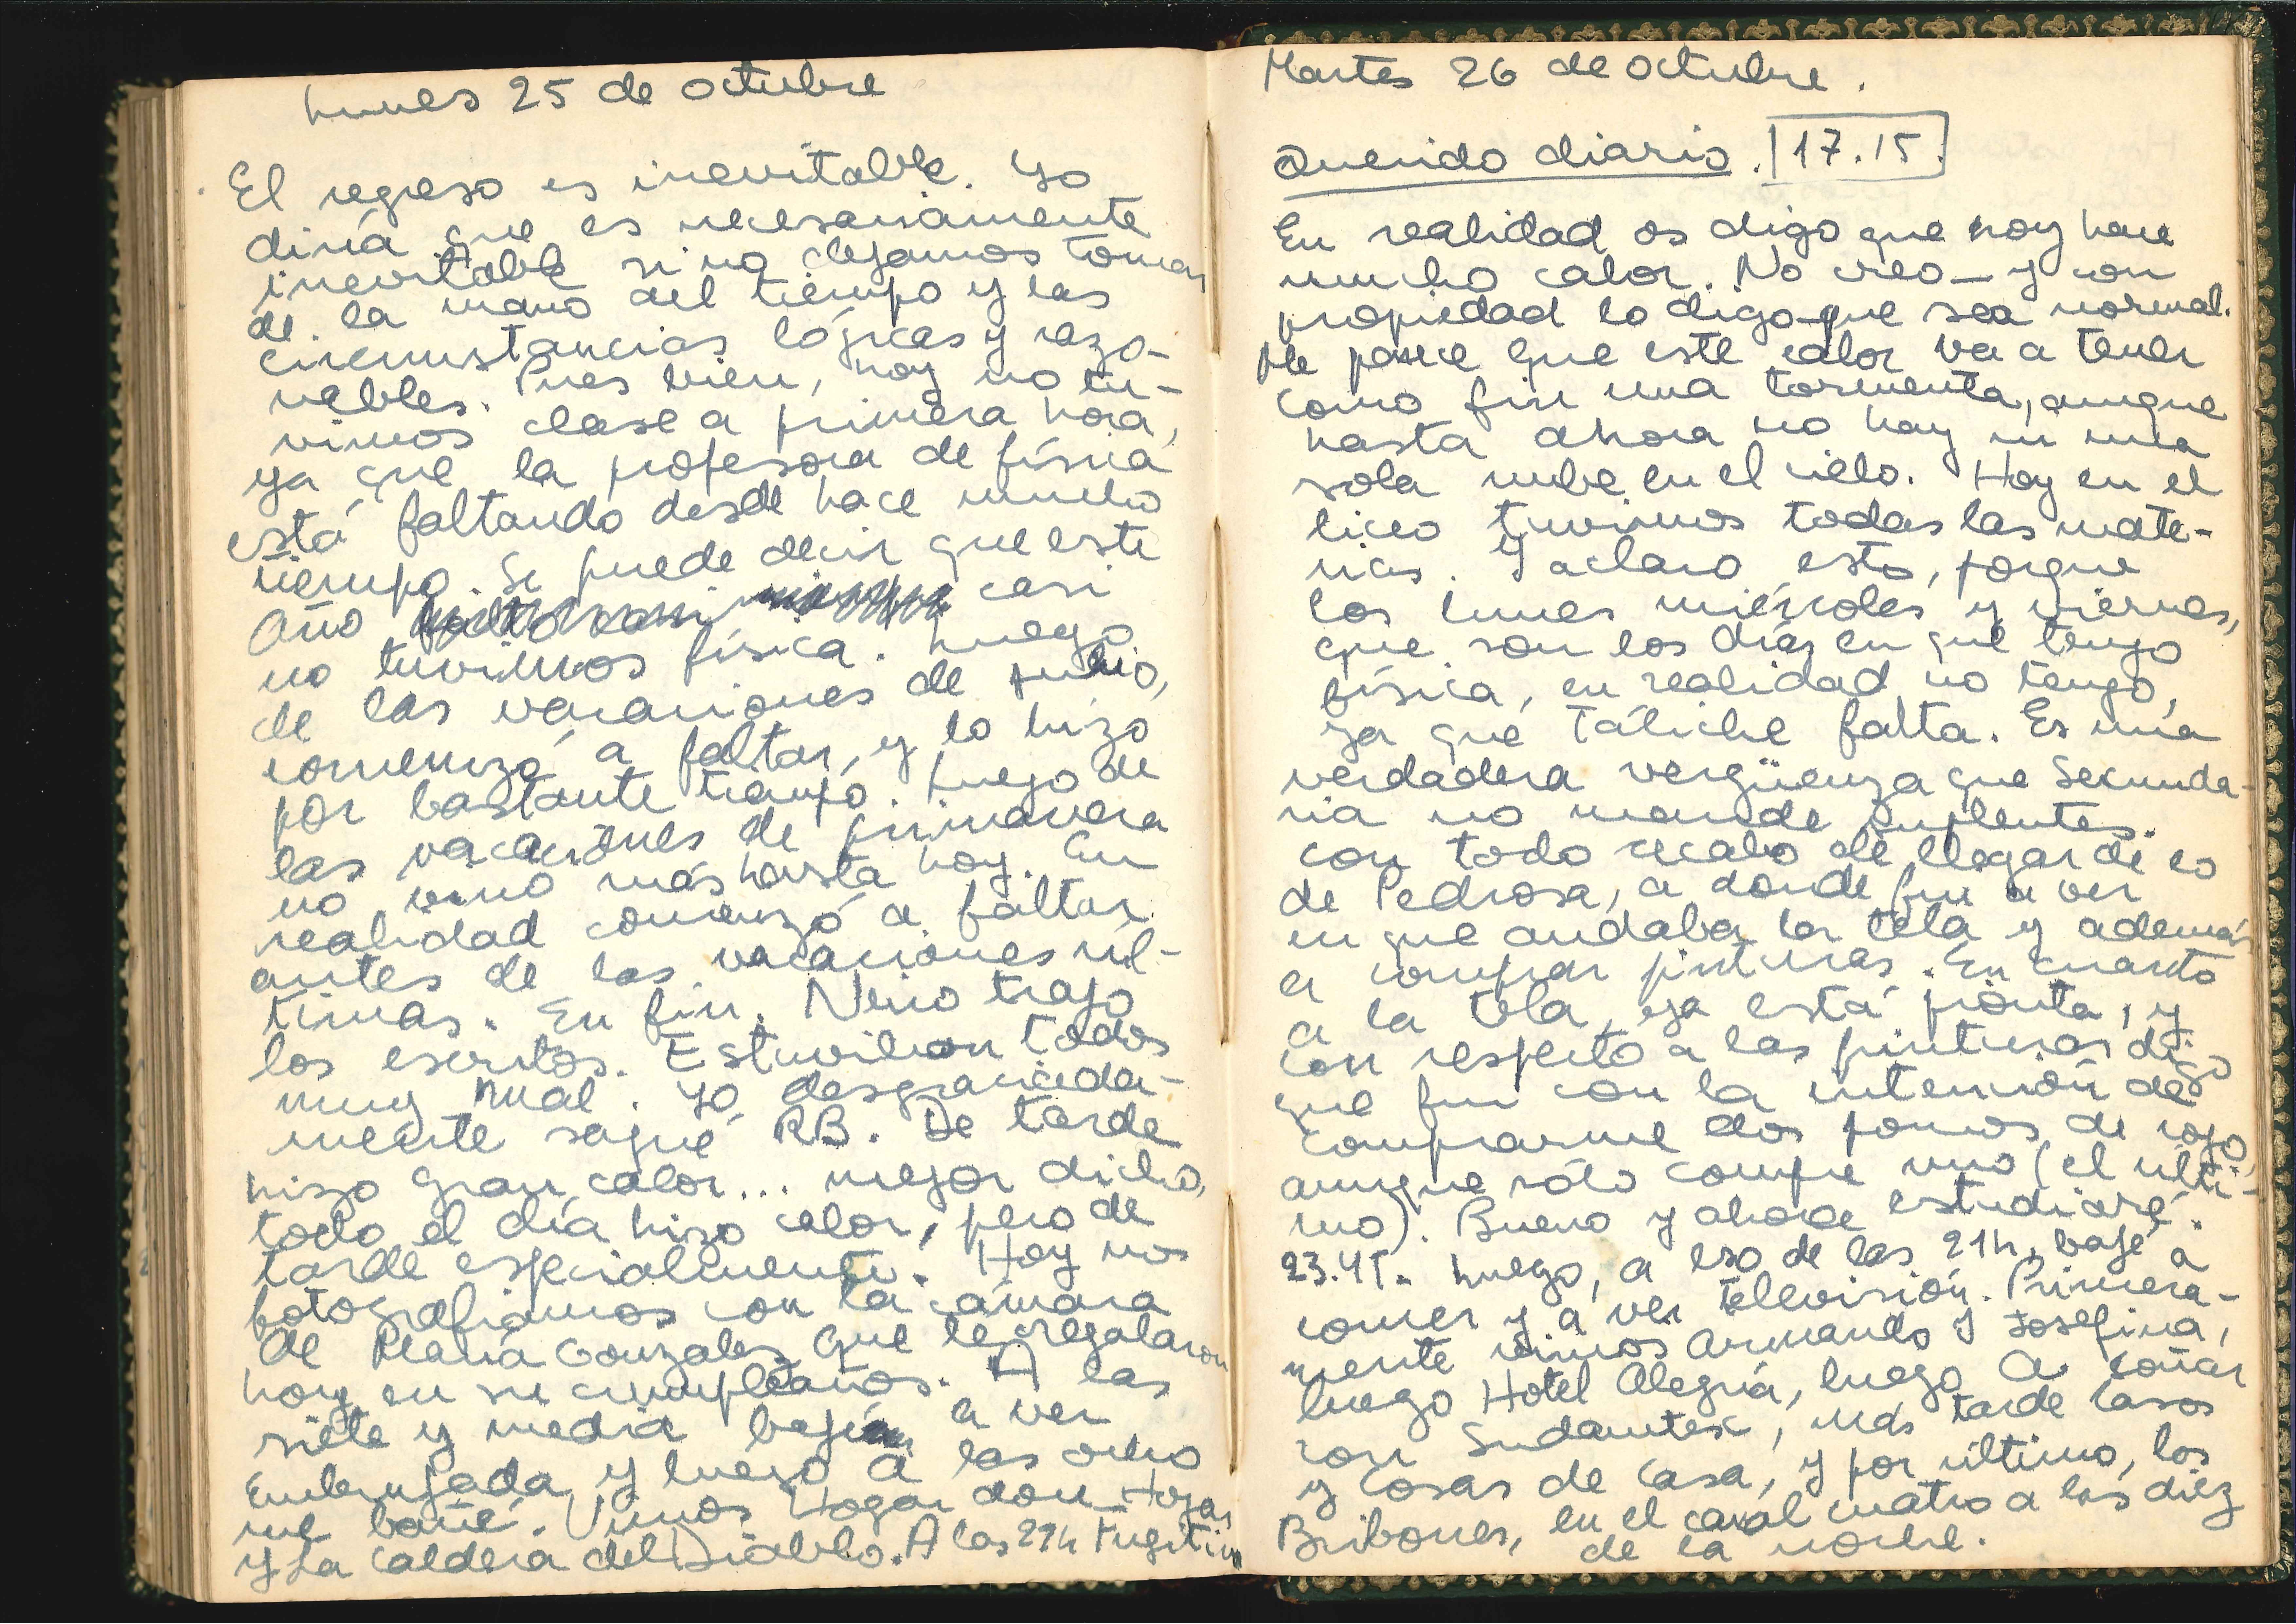 Lunes 25 de octubre
El regreso es inevitable. Yo
diría que es necesariamente
inevitable si no dejamos tomar
de la mano del tiempo y las
circunstancias lógicas y razo-
nables. Pues bien, hoy no tu-
vimos clase a primera hora,
ya que la profesora de física
está faltando desde hace mucho
tiempo. Se puede decir que este
año casi
no tuvimos física. Luego
de las vacaciones de julio,
comenzó a faltar, y lo hizo
por bastante tiempo. Luego de
las vacaciones de primavera
no vino más hasta hoy. En
realidad comenzó a faltar
antes de las vacaciones úl-
timas. En fin. Neiro trajo
los escritos. Estuvieron todos
muy mal. Yo, desgraciada-
mente saqué RB. De tarde
hizo gran calor... mejor dicho,
todo el día hizo calor, pero de
tarde especialmente. Hoy nos
fotografiamos con la cámara
de María Gonzales que le regalaron
hoy en su cumpleaños. A las
siete y media bajé a ver
Embrujada y luego a las ocho
me bañé. Vimos Hogar don Hogar
y La Caldera del Diablo. A las 21h Fugitivo
Martes 26 de octubre.
Querido diario. 17.15.
En realidad os digo que hoy hace
mucho calor. No creo - y con
propiedad lo digo - que sea normal.
Me parece que este calor va a tener
como fin una tormenta, aunque
hasta ahora no hay ni una
sola nube en el cielo. Hoy en el
liceo tuvimos todas las mate-
rias. Y aclaro esto, porque
los lunes miércoles y viernes,
que son los días en que tengo
física, en realidad no tengo,
ya que Táliche falta. Es una
verdadera vergüenza que Secunda-
ria no mande suplentes.
Con todo acabo de llegar de lo
de Pedrosa, a donde fui a ver
en que andaba la tela y además
a comprar pinturas. En cuanto
a la tela, ya está pronta, y
con respecto a las pinturas digo
que fui con la intención de
comprarme dos pomos de rojo,
aunque sólo compré uno (el últi-
mo). Bueno y ahora estudiaré.
23.45. Luego, a eso de las 21h, bajé a
comer y a ver televisión. Primera-
mente vimos Armando y Josefina,
luego Hotel Alegría, luego A soñar
con Sudamtex, más tarde Casos
y Cosas de Casa, y por último, los
Bribones, en el canal cuatro a las diez
de la noche.